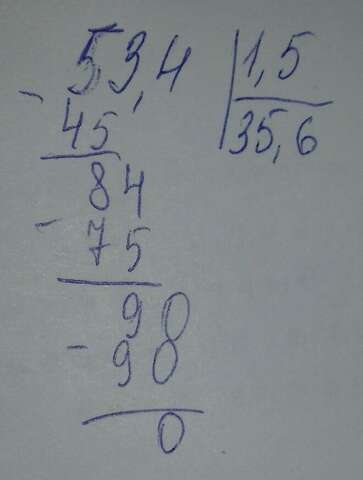 53,4 | 1,5
- 45 35,6
84
- 75
90
- 90
0